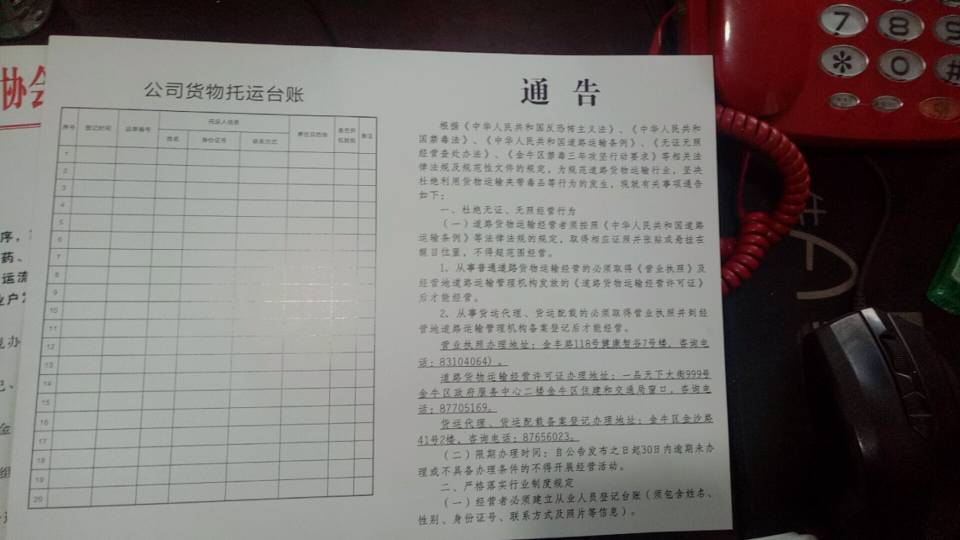 协会
序，
药、
运流
业户
公司货物托运台账
序号 登记时间 运单编号 托运人信息 承运货物 备注
姓名 身份证号 联系方式
1
2
3
4
5
6
7
8
9
10
11
12
13
14
15
16
17
18
19
20
通 告
根据《中华人民共和国反恐怖主义法》、《中华人民共和
国禁毒法》、《中华人民共和国道路运输条例》、《无证无照
经营查处办法》、《金牛区禁毒三年攻坚行动要求》等相关法
律法规及规范性文件的规定，为规范道路货物运输行业，坚决
杜绝利用货物运输夹带毒品等行为的发生，现就有关事项通告
如下：
一、杜绝无证、无照经营行为
（一）道路货物运输经营者须按照《中华人民共和国道路
运输条例》等法律法规的规定，取得相应证照并张贴或悬挂在
醒目位置，不得超范围经营。
1、从事普通道路货物运输经营的必须取得《营业执照》及
经营地道路运输管理机构发放的《道路货物运输经营许可证》
后才能经营。
2、从事货运代理、货运配载的必须取得营业执照并到经
营地道路运输管理机构备案登记后才能经营。
营业执照办理地址：金丰路118号健康智谷7号楼，咨询电
话：83104064）。
道路货物运输经营许可证办理地址：一品天下大街999号
金牛区政府服务中心二楼金牛区住建和交通局窗口，咨询电
话：87705169。
货运代理、货运配载备案登记办理地址：金牛区金沙路
41号2楼，咨询电话：87656023。
（二）限期办理时间：自公告发布之日起30日内逾期未办
理或不具备办理条件的不得开展经营活动。
二、严格落实行业制度规定
（一）经营者必须建立从业人员登记台账（须包含姓名、
性别、身份证号、联系方式及照片等信息）。
7 8 9
* 0 #